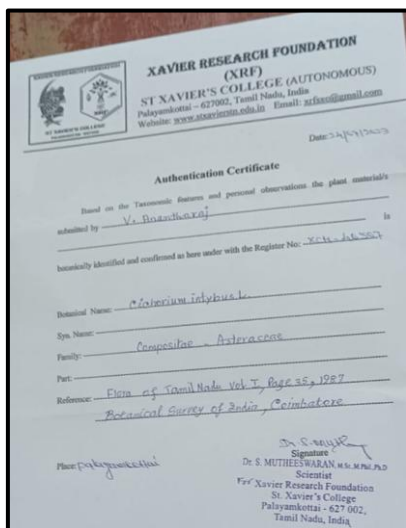 XAVIER RESEARCH FOUNDATION
(XRF)
ST XAVIER'S COLLEGE (AUTONOMOUS)
Palayamkottai – 627002, Tamil Nadu, India
Website: www.stxavierstn.edu.in Email: xrfsxc@gmail.com
ST XAVIER'S COLLEGE
Date:
Authentication Certificate
Based on the Taxonomic features and personal observations the plant material/s
submitted by V. Anantharaj is
botanically identified and confirmed as here under with the Register No:
Botanical Name: Cichorium intybus L.
Syn. Name:
Family: Compositae - Asteraceae
Part:
Reference: Flora of Tamil Nadu Vol I, Page 35, 1987
Botanical Survey of India, Coimbatore
Place: Palayamkottai
Signature
Dr. S. MUTHEESWARAN, M.Sc., M.Phil., Ph.D
Scientist
For Xavier Research Foundation
St. Xavier's College
Palayamkottai - 627 002,
Tamil Nadu, India